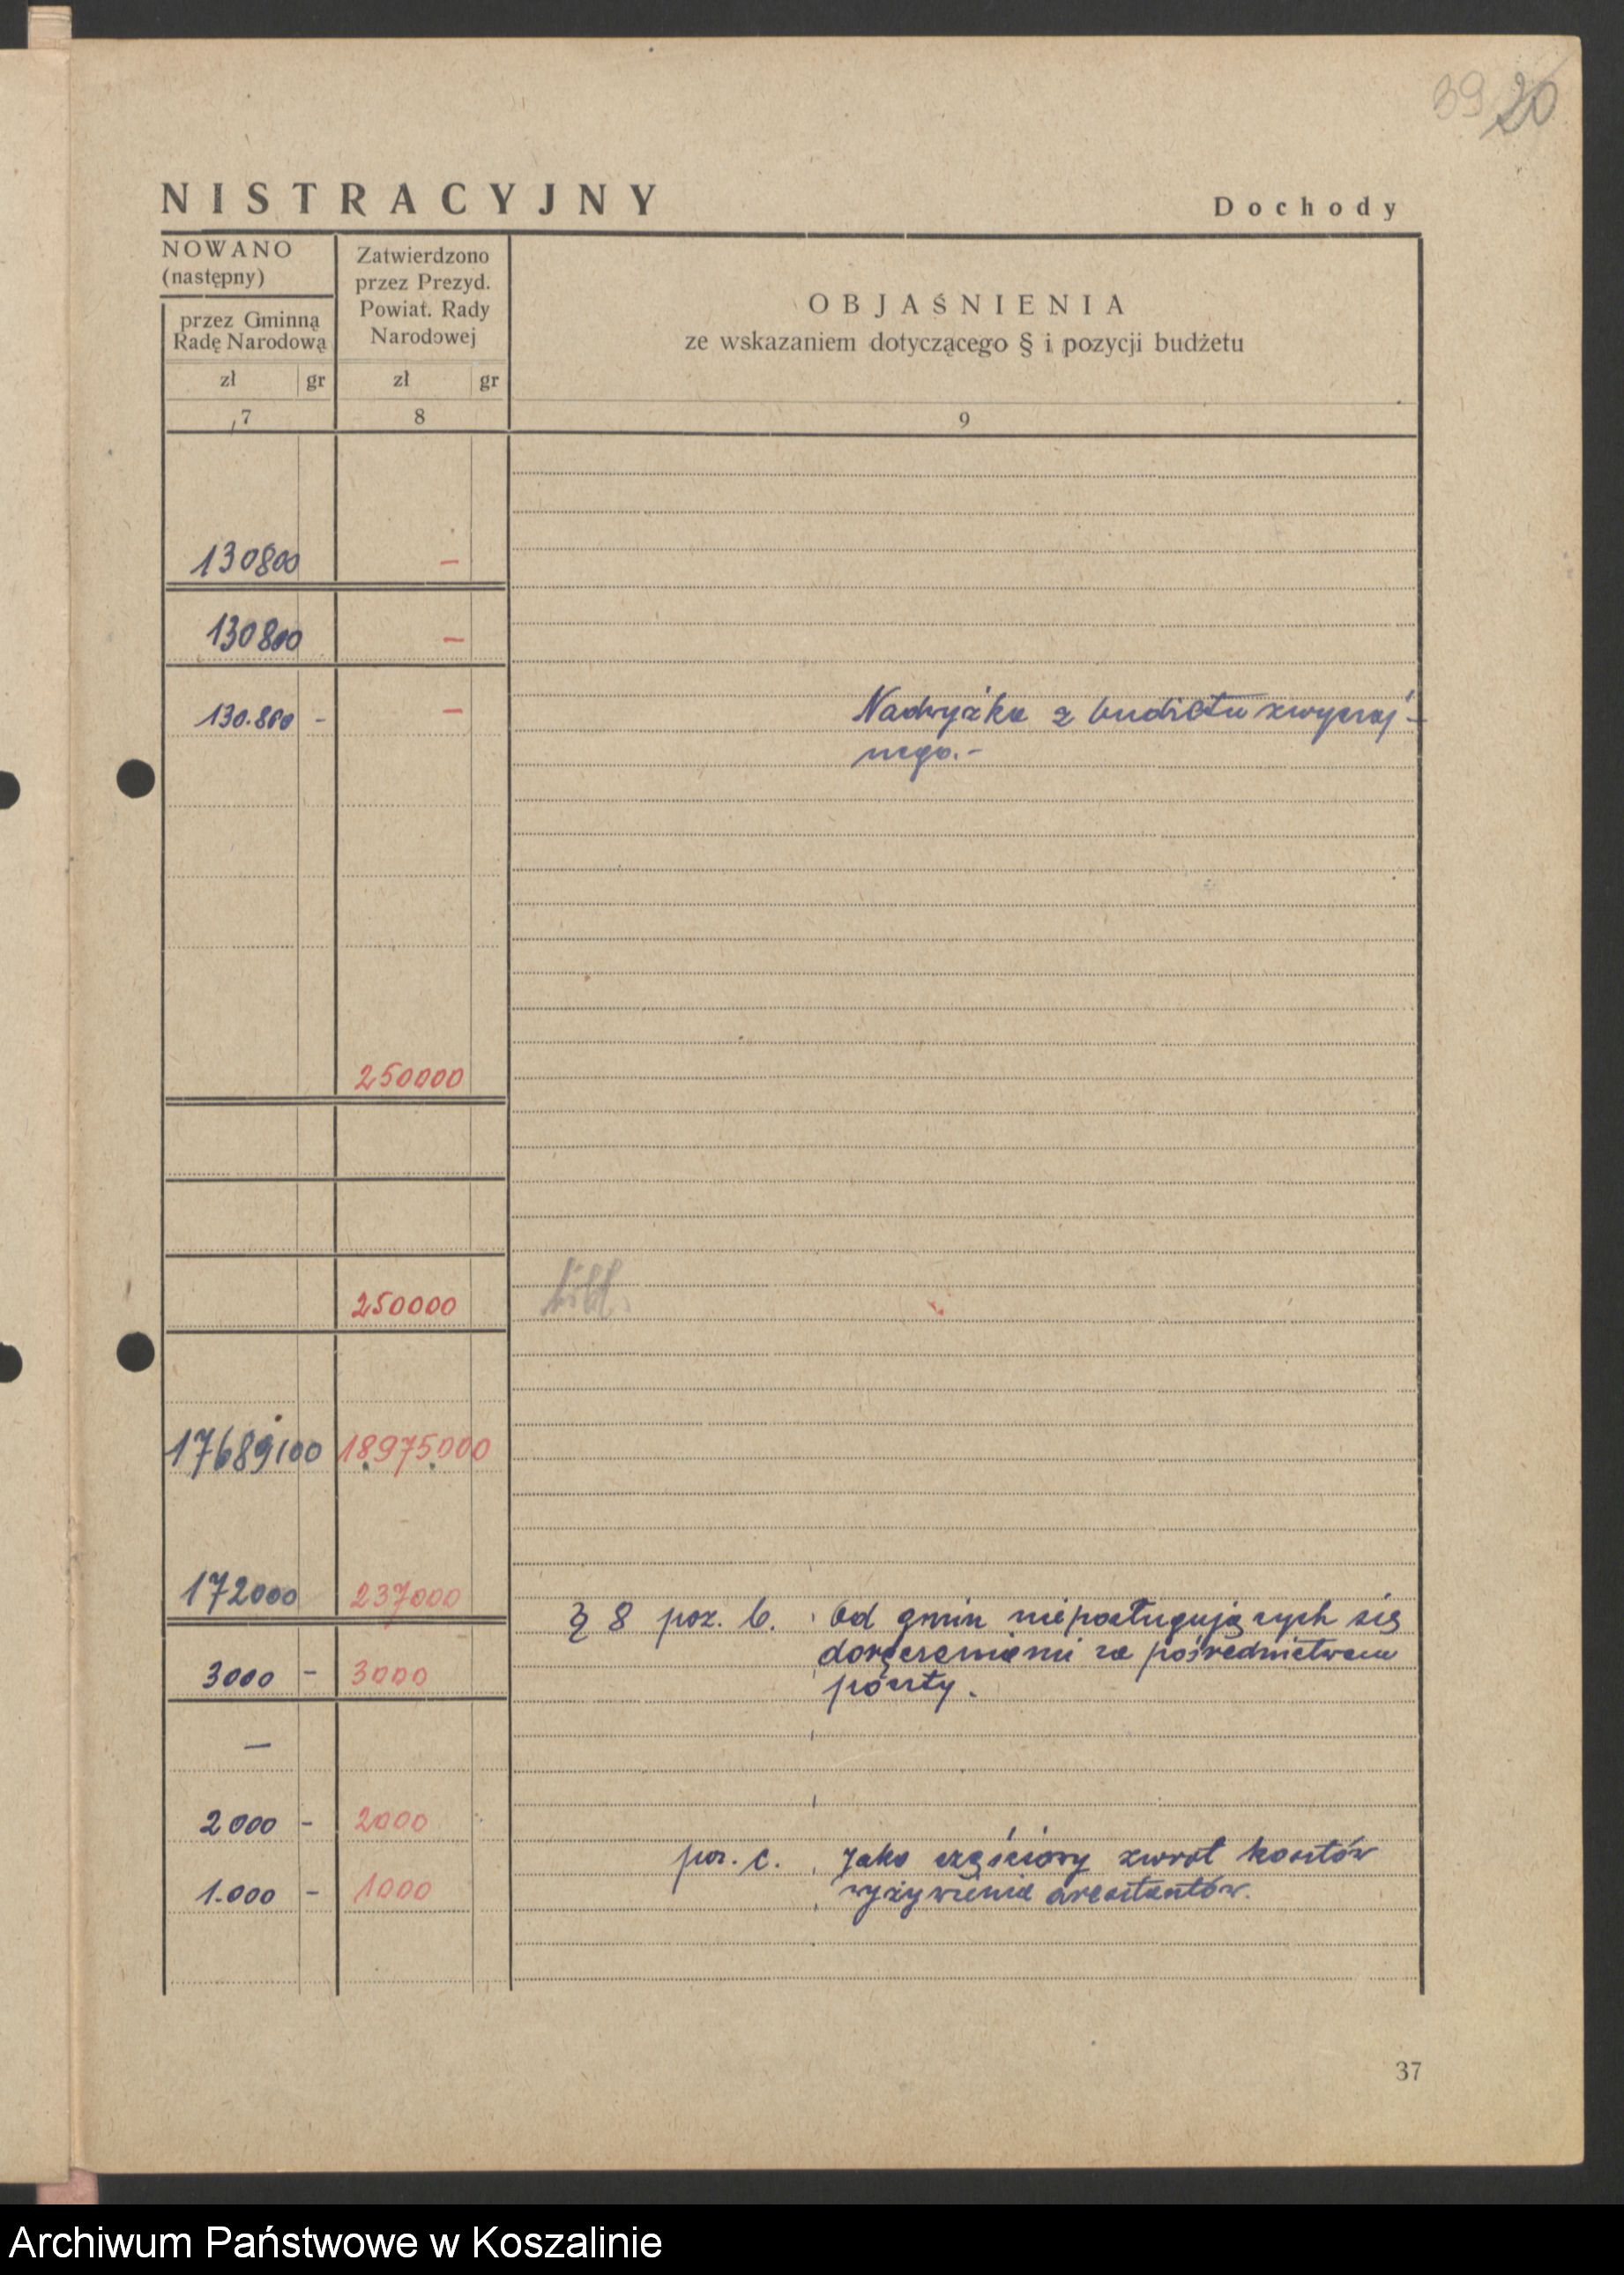 39 20
NISTRACYJNY Dochody
NOWANO
(następny)
przez Gminną
Radę Narodową
zł gr
7
Zatwierdzono
przez Prezyd.
Powiat. Rady
Narodowej
zł gr
8
OBJAŚNIENIA
ze wskazaniem dotyczącego § i pozycji budżetu
9
130800 —
130800 —
130.800 - —
Nadwyżka z budżetu zwyczaj-
nego.-
250000
250000
17689100 18975000
172000 237000
§ 8 poz. b. Od gmin nieposługujących się
doręczeniami za pośrednictwem
poczty.
3000 - 3000
—
2000 - 2000
poz. c. Jako częściowy zwrot kosztów
wyżywienia aresztantów.
1.000 - 1000
37
Archiwum Państwowe w Koszalinie